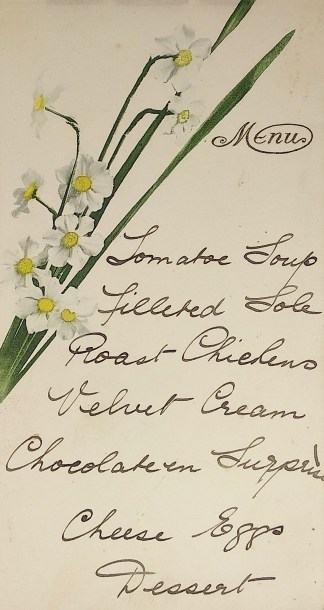 Menu
Tomatoe Soup
filleted Sole
Roast Chickens
Velvet Cream
Chocolate en Surpris
Cheese Eggs
Dessert